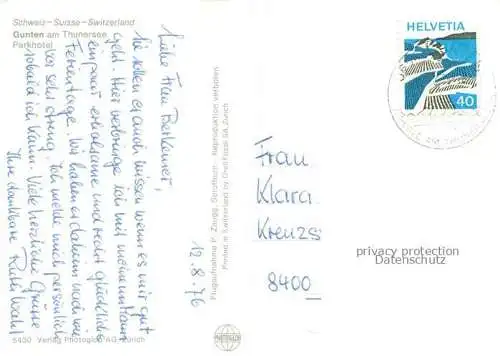 Schweiz – Suisse – Switzerland
Gunten am Thunersee
Parkhotel
12.8.76
Liebe Frau Berkemer,
Sie sollen es auch wissen wenn es mir gut
geht. Hier verbringe ich mit meinem Mann
einpaar erholsame und recht glückliche
Ferientage. Wir haben es daheim nach wie
vor sehr streng. Ich melde mich persönlich
sobald ich kann. Viele herzliche Grüsse
Ihre dankbare Ruth
6430 Verlag Photoglob AG Zürich
Flugaufnahme P. Zaugg, Solothurn Reproduktion verboten
Printed in Switzerland by Orell Füssli AG Zürich
PHOTOGLOB
HELVETIA
40
Frau
Klara
Kreuzs
8400
privacy protection
Datenschutz